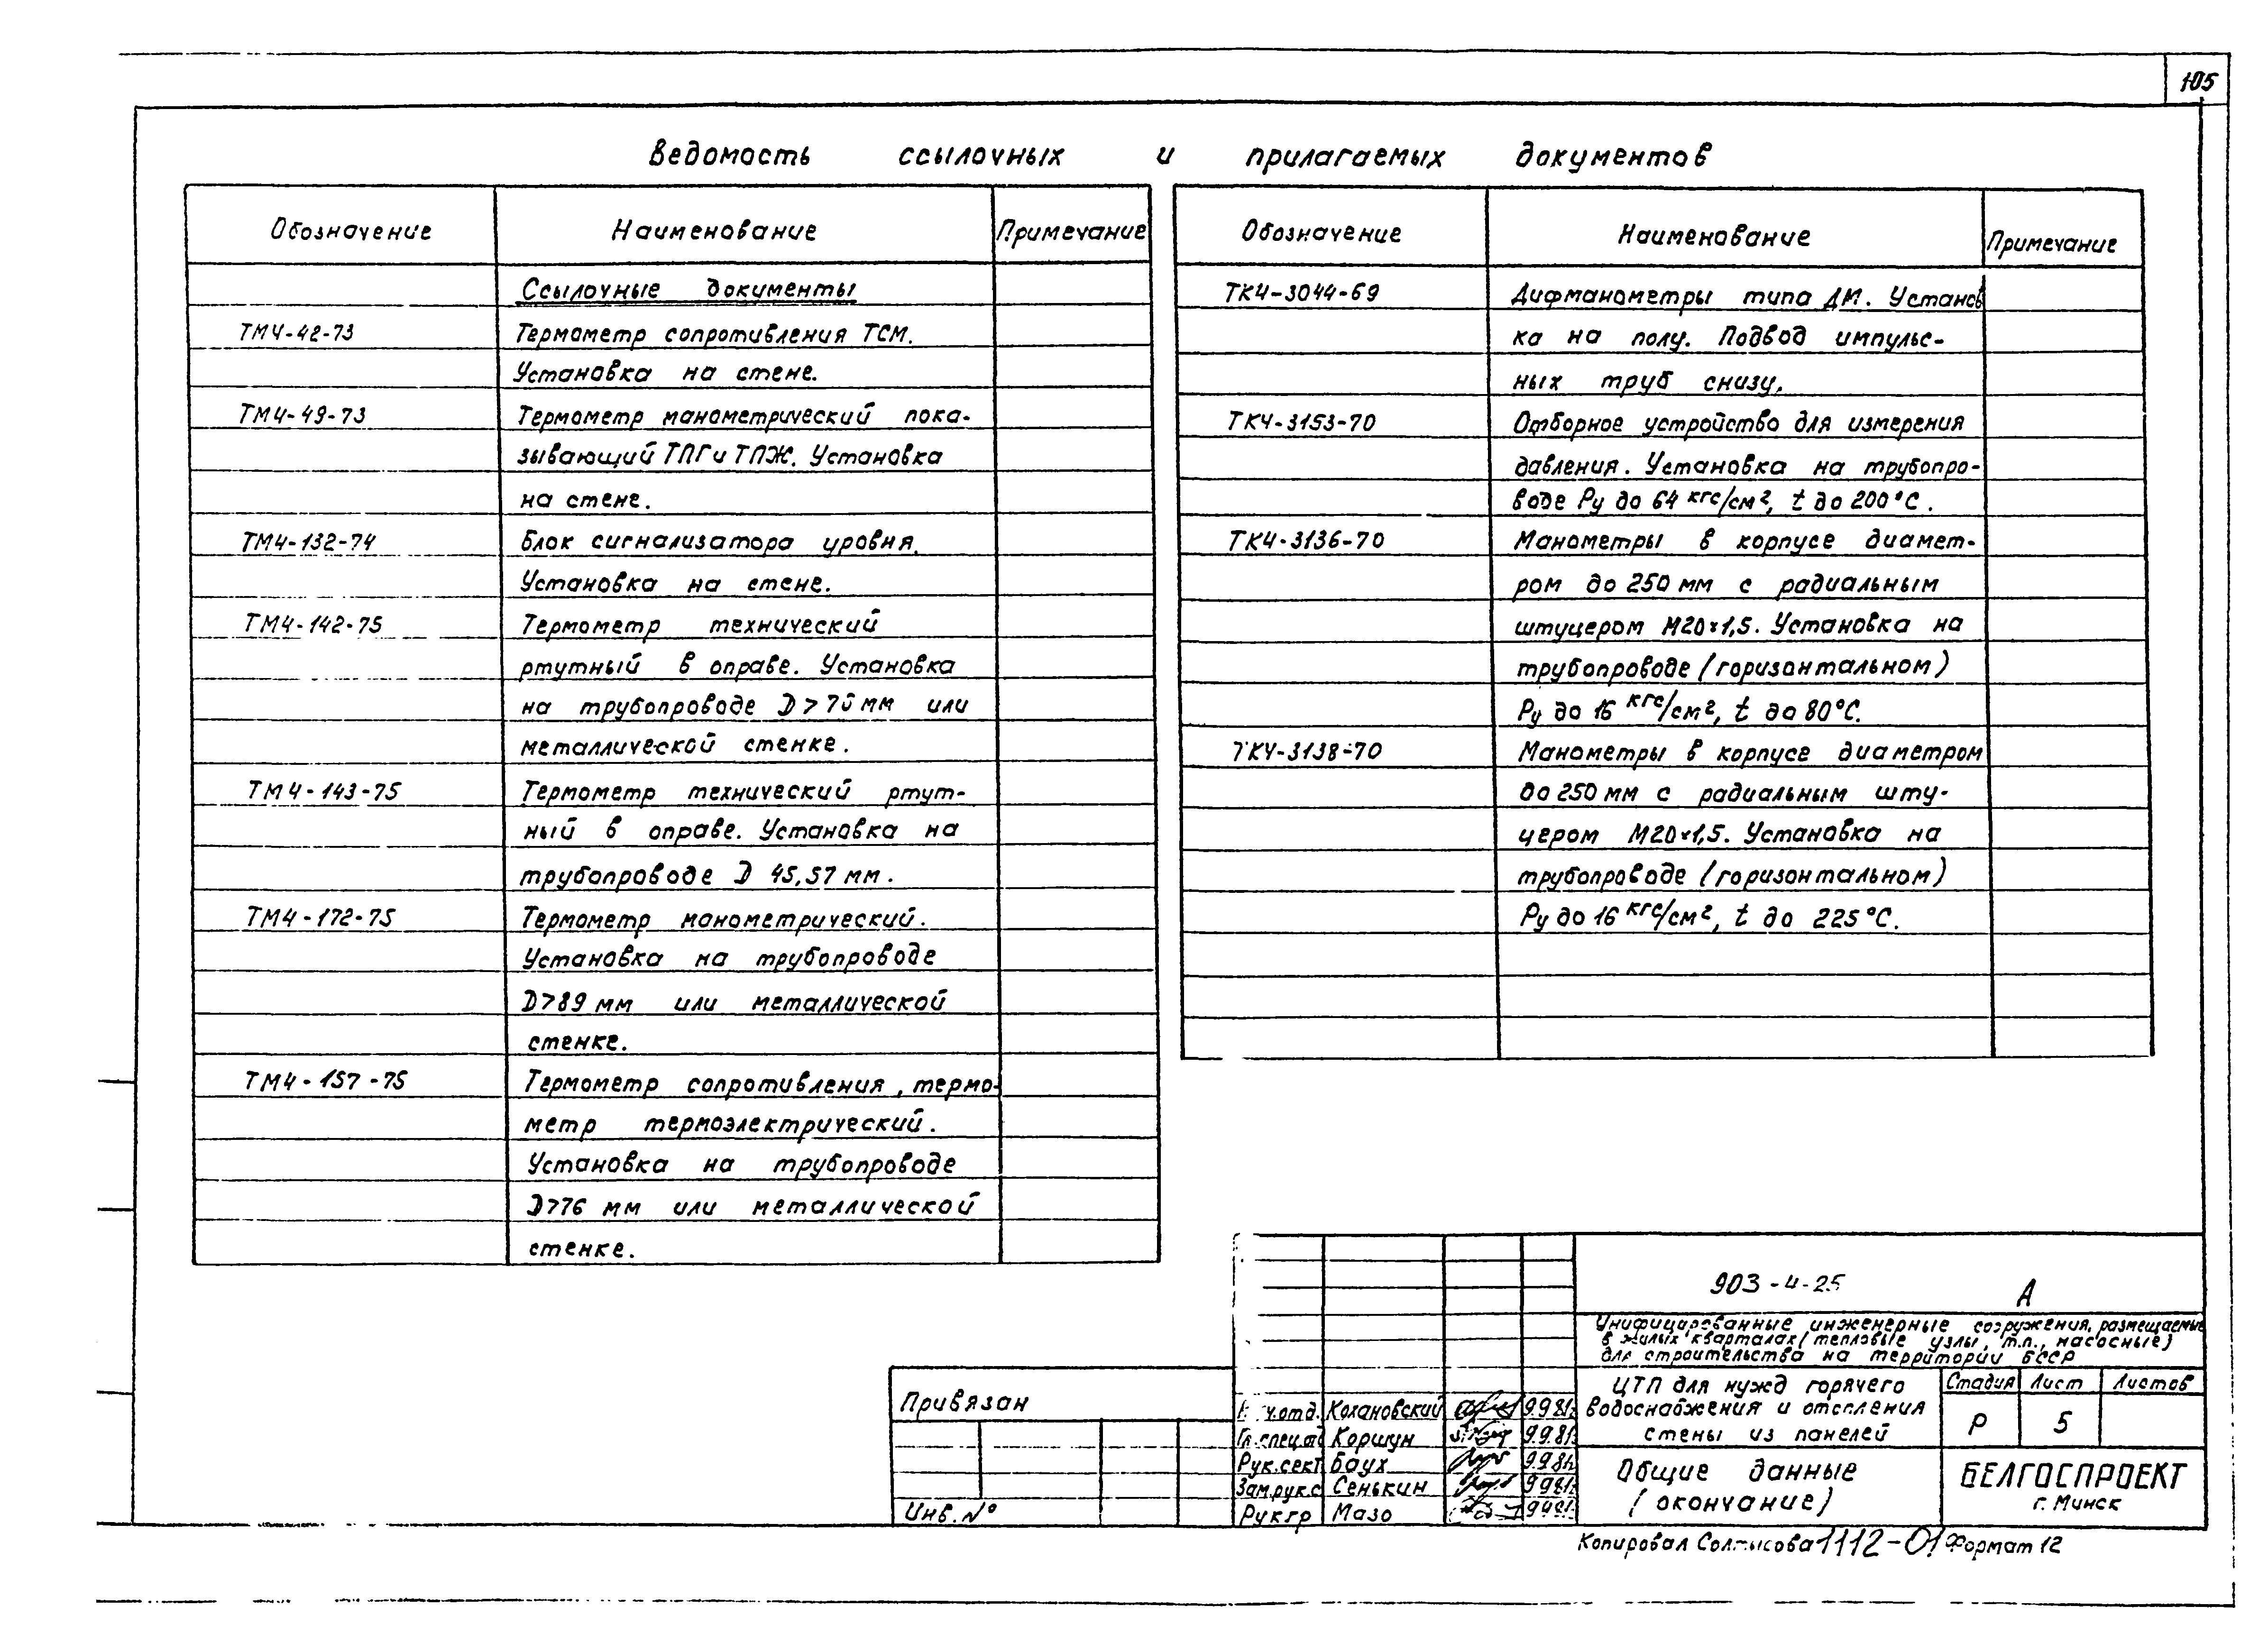 105
Ведомость ссылочных и прилагаемых документов
Обозначение Наименование Примечание
Ссылочные документы
ТМ4-42-73 Термометр сопротивления ТСМ.
Установка на стене.
ТМ4-49-73 Термометр манометрический пока-
зывающий ТПГ и ТПЖ. Установка
на стене.
ТМ4-132-74 Блок сигнализатора уровня.
Установка на стене.
ТМ4-142-75 Термометр технический
ртутный в оправе. Установка
на трубопроводе D>76 мм или
металлической стенке.
ТМ4-143-75 Термометр технический ртут-
ный в оправе. Установка на
трубопроводе D 45,57 мм.
ТМ4-172-75 Термометр манометрический.
Установка на трубопроводе
D>89 мм или металлической
стенке.
ТМ4-157-75 Термометр сопротивления, термо-
метр термоэлектрический.
Установка на трубопроводе
D>76 мм или металлической
стенке.
Обозначение Наименование Примечание
ТК4-3044-69 Дифманометры типа ДМ. Установ
ка на полу. Подвод импульс-
ных труб снизу.
ТК4-3153-70 Отборное устройство для измерения
давления. Установка на трубопро-
воде Ру до 64 кгс/см², t до 200°С.
ТК4-3136-70 Манометры в корпусе диамет-
ром до 250 мм с радиальным
штуцером М20×1,5. Установка на
трубопроводе (горизонтальном)
Ру до 16 кгс/см², t до 80°С.
ТК4-3138-70 Манометры в корпусе диаметром
до 250 мм с радиальным шту-
цером М20×1,5. Установка на
трубопроводе (горизонтальном)
Ру до 16 кгс/см², t до 225°С.
903-4-25 А
Унифицированные инженерные сооружения, размещаемые
в жилых кварталах (тепловые узлы, т.п., насосные)
для строительства на территории БССР
ЦТП для нужд горячего
водоснабжения и отопления
стены из панелей
Стадия Лист Листов
Р 5
Общие данные
(окончание)
БЕЛГОСПРОЕКТ
г. Минск
Привязан
Инв. №
ч.отд. Кохановский 9.9.81г.
Гл.спец.од Коршун 9.9.81г.
Рук.сект Баух 9.9.81г.
Зам.рук.с Сенькин 9.9.81г.
Рук гр Мазо
Копировал Солтысова 1112-01 Формат 12